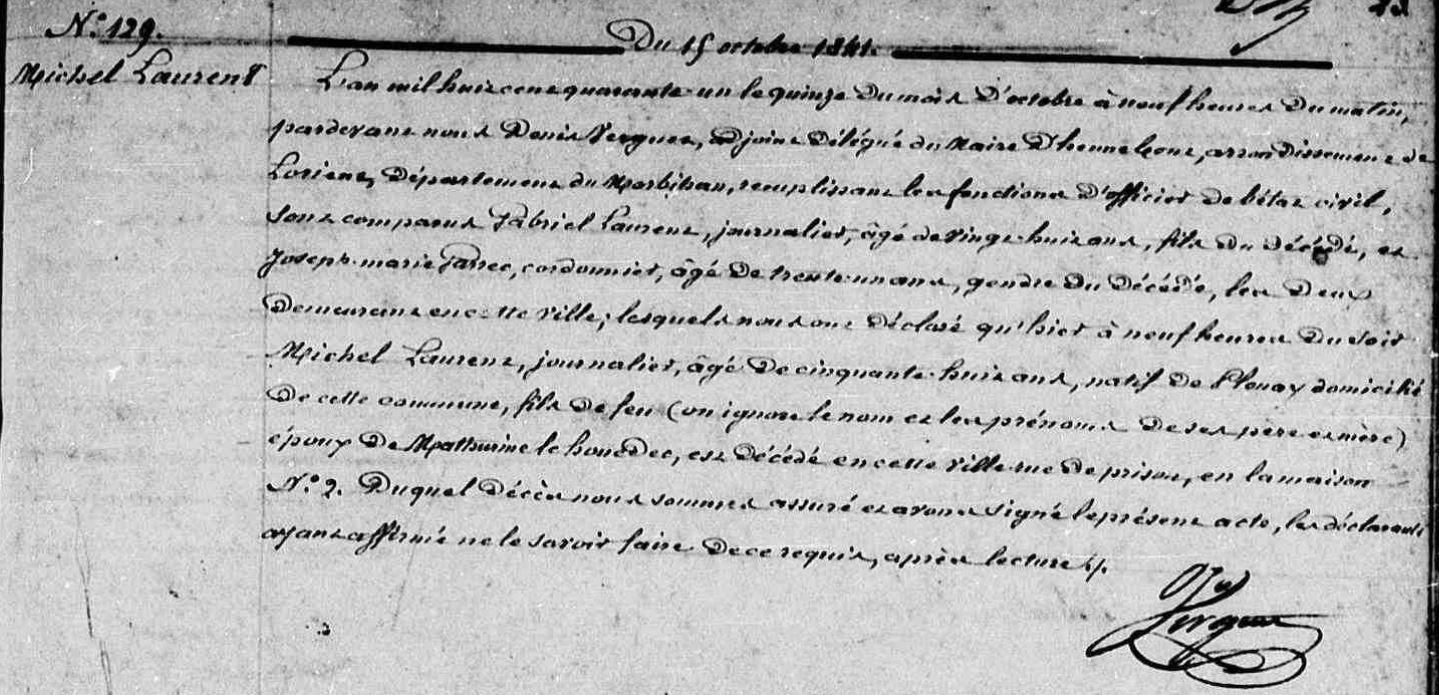 N.° 129.
Du 15 octobre 1841.
Michel Laurent
L'an mil huit cent quarante-un le quinze du mois d'octobre à neuf heures du matin,
pardevant nous Denis Vergnes, adjoint délégué du Maire d'hennebont, arrondissement de
Lorient, Département du Morbihan, remplissant les fonctions d'officier de l'état civil,
sont comparus Gabriel Laurent, journalier, âgé de vingt-huit ans, fils du décédé, et
Joseph-marie, cordonnier, âgé de trente-un ans, gendre du décédé, les deux
demeurant en cette ville; lesquels nous ont déclaré qu'hier à neuf heures du soir
Michel Laurent, journalier, âgé de cinquante-huit ans, natif de Plouay domicilié
de cette commune, fils de feu (on ignore le nom et les prénoms de ses père et mère)
époux de Mathurine le houedec, est décédé en cette ville rue de prison, en la maison
N.° 2. Duquel décès nous sommes assuré et avons signé le présent acte, les déclarants
ayant affirmé ne le savoir faire de ce requis, après lecture ./.
Vergnes